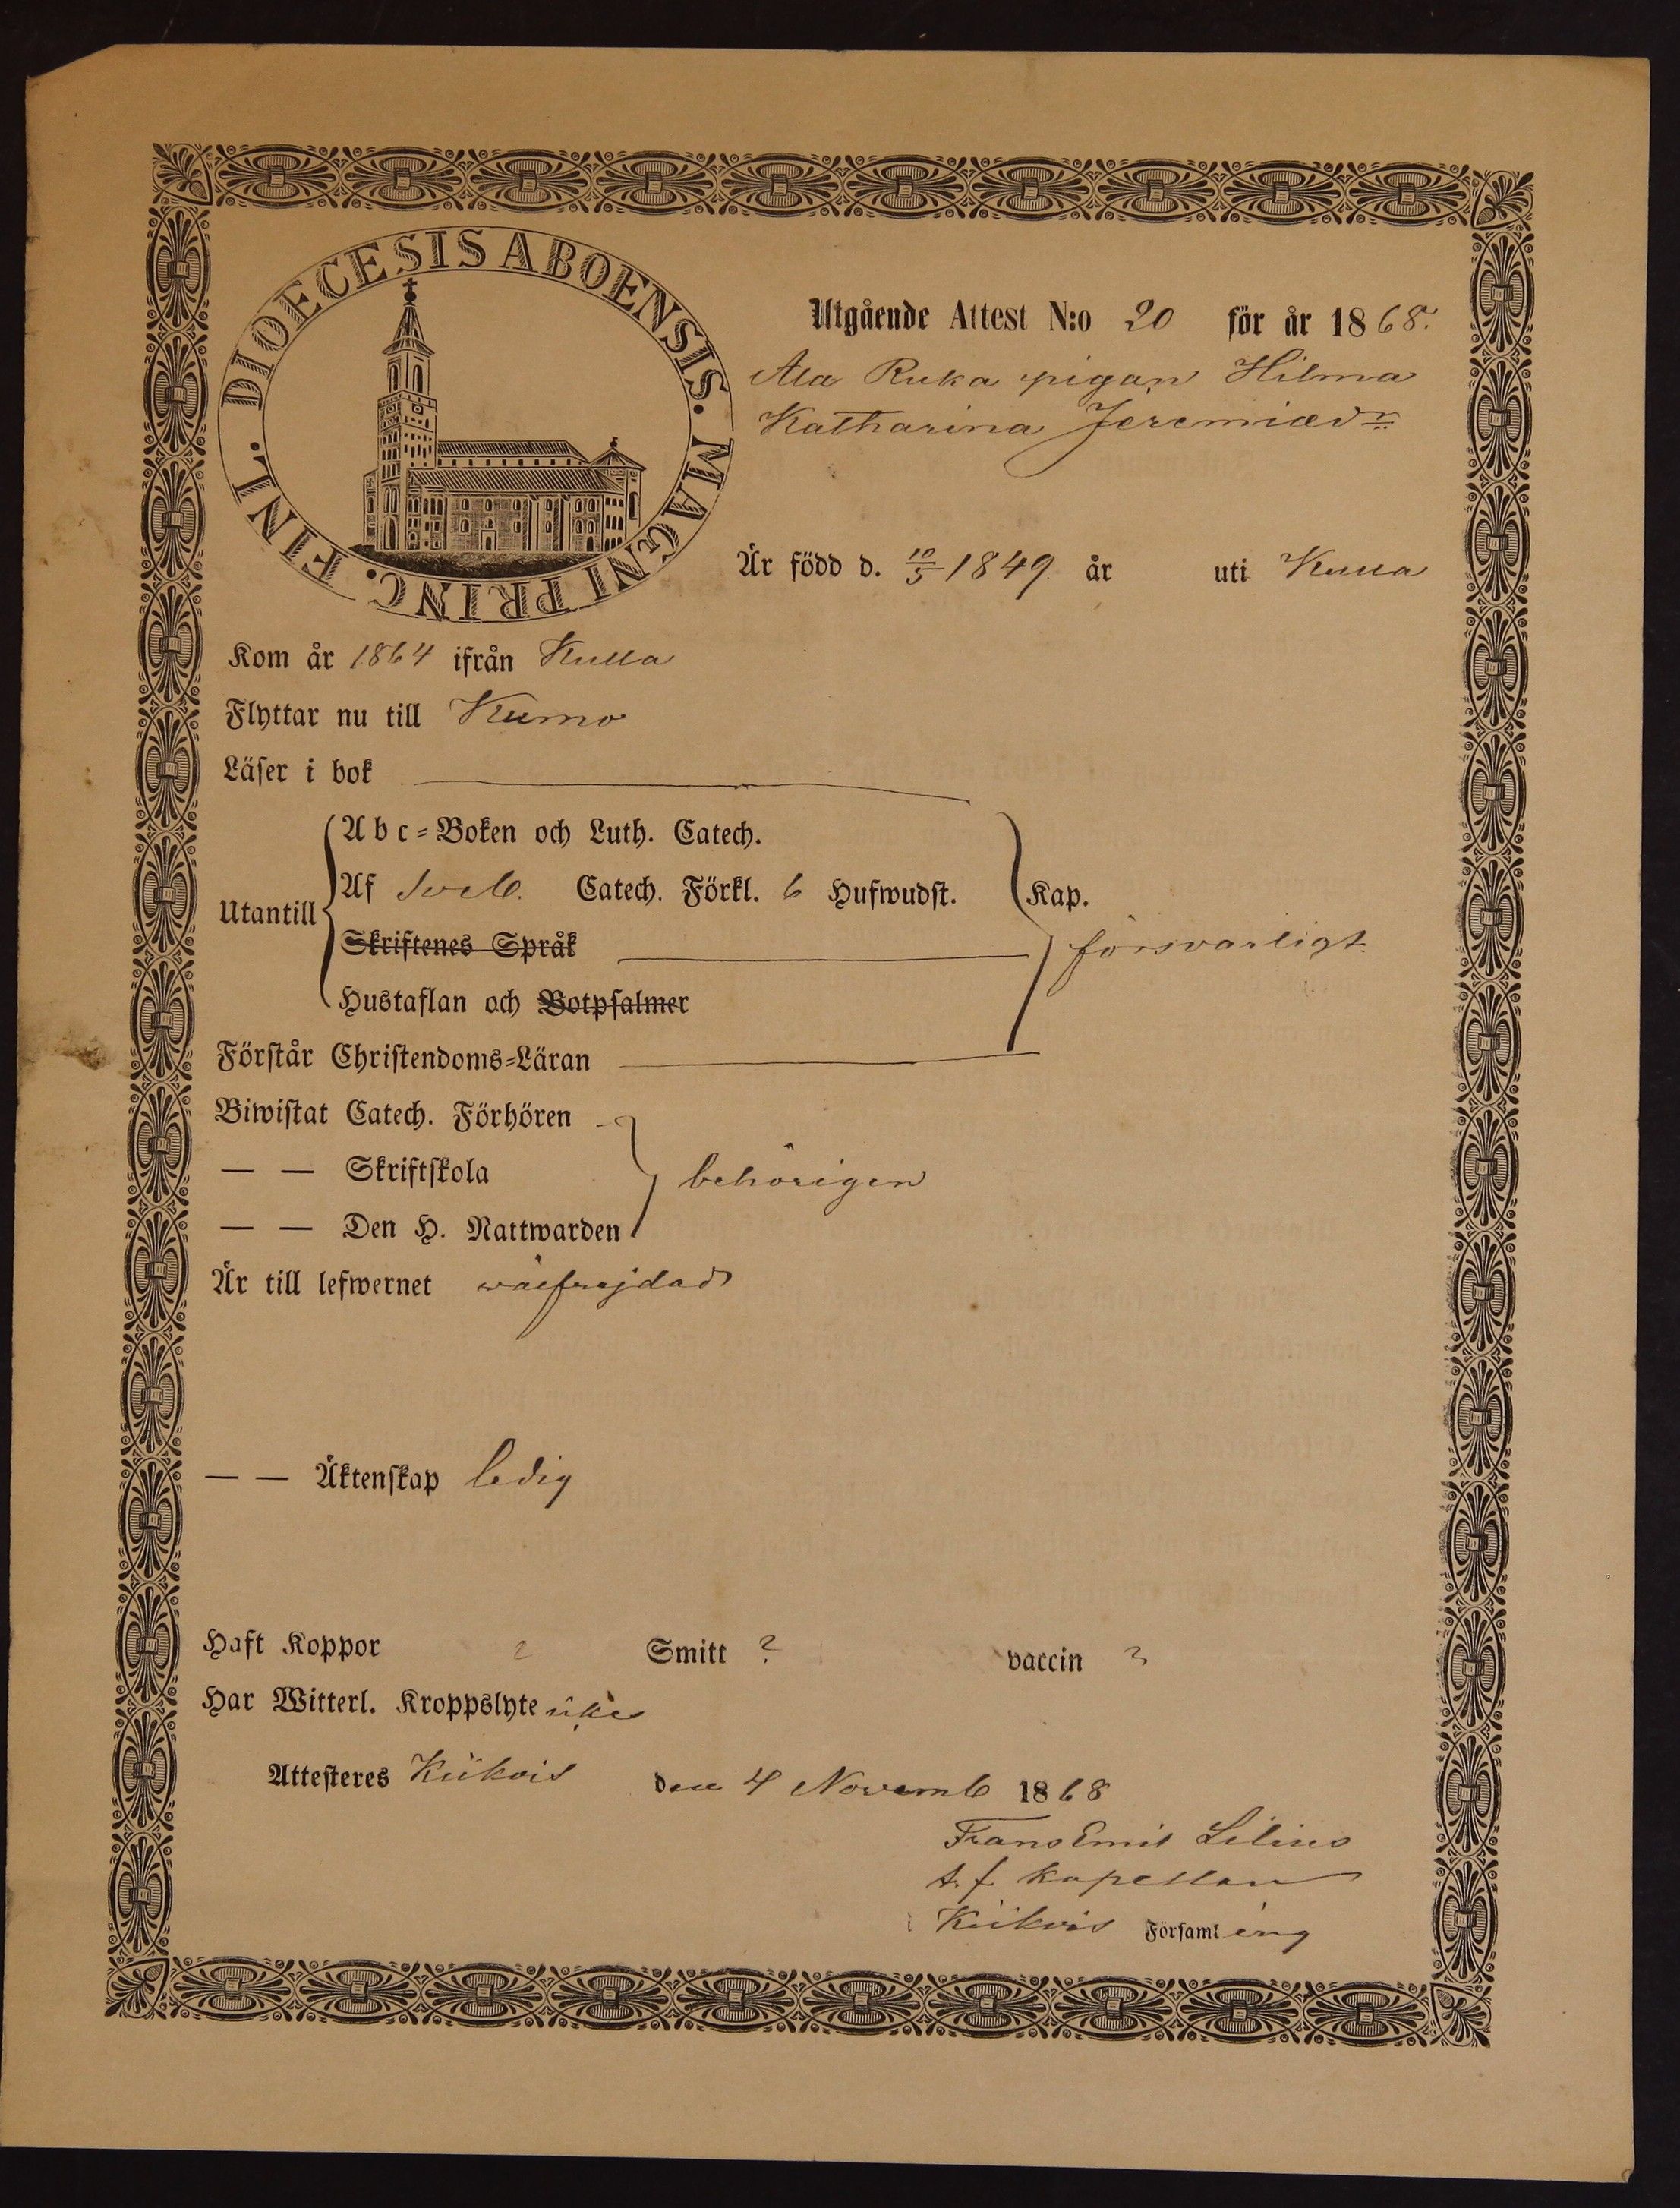 DIOECESIS ABOENSIS. MAGNI PRINC. FINL.
Utgående Attest N:o 20 för år 1868.
Ala Ruka pigan Hilma
Katharina Jeremiædr
Är född d. 10/5 1849 år uti Kulla
Kom år 1864 ifrån Kulla
Flyttar nu till Kumo
Läser i bok
Utantill
Abc-Boken och Luth. Catech.
Af Sveb. Catech. Förkl. 6 Hufwudst. Kap.
Skriftenes Språk
försvarligt
Hustaflan och Botpsalmer
Förstår Christendoms-Läran
Biwistat Catech. Förhören
— — Skriftskola behörigen
— — Den H. Nattwarden
Är till lefwernet wälfrejdad
— — Äktenskap ledig
Haft Koppor ? Smitt ? vaccin ?
Har Witterl. Kroppslyte icke
Attesteres Kiikois den 4 Novemb 1868
Frans Emil Lilius
t. f. kapellan
i Kiikois Församling